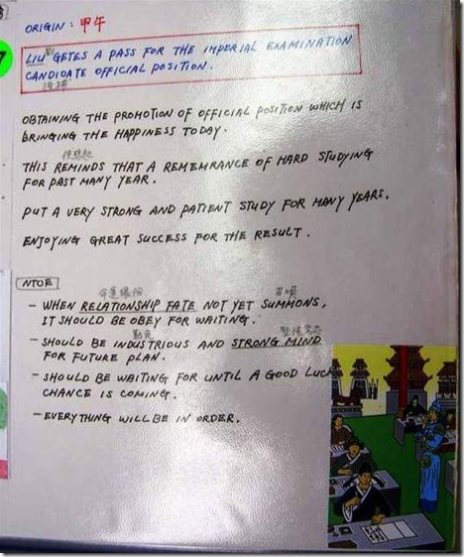 ORIGIN : 甲午
LIU GETES A PASS FOR THE IMPERIAL EXAMINATION
CANDIDATE OFFICIAL POSITION.
OBTAINING THE PROMOTION OF OFFICIAL POSITION WHICH IS
BRINGING THE HAPPINESS TODAY.
THIS REMINDS THAT A REMEMRANCE OF HARD STUDYING
FOR PAST MANY YEAR.
PUT A VERY STRONG AND PATIENT STUDY FOR MANY YEARS.
ENJOYING GREAT SUCCESS FOR THE RESULT.
NTOE
- WHEN RELATIONSHIP FATE NOT YET SUMMONS,
IT SHOULD BE OBEY FOR WAITING.
- SHOULD BE INDUSTRIOUS AND STRONG MIND
FOR FUTURE PLAN.
- SHOULD BE WAITING FOR UNTIL A GOOD LUCK
CHANCE IS COMING.
- EVERYTHING WILL BE IN ORDER.